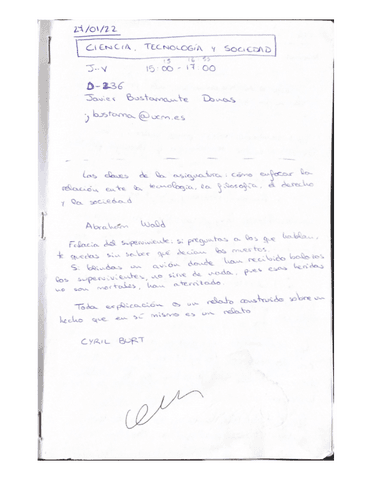 27/01/22
CIENCIA, TECNOLOGÍA Y SOCIEDAD
J-V 15:00-17:00
D-236
Javier Bustamante Donas
jbustama@ucm.es
Las claves de la asignatura: cómo enfocar la
relación entre la tecnología, la filosofía, el derecho
y la sociedad
Abraham Wald
Falacia del superviviente, si preguntas a los que hablan,
te quedas sin saber que decían los muertos
Si blindas un avión donde han recibido balazos
los supervivientes, no sirve de nada, pues esas heridas
no son mortales, han aterrizado.
Toda explicación es un relato construido sobre un
hecho que en sí mismo es un relato
CYRIL BURT